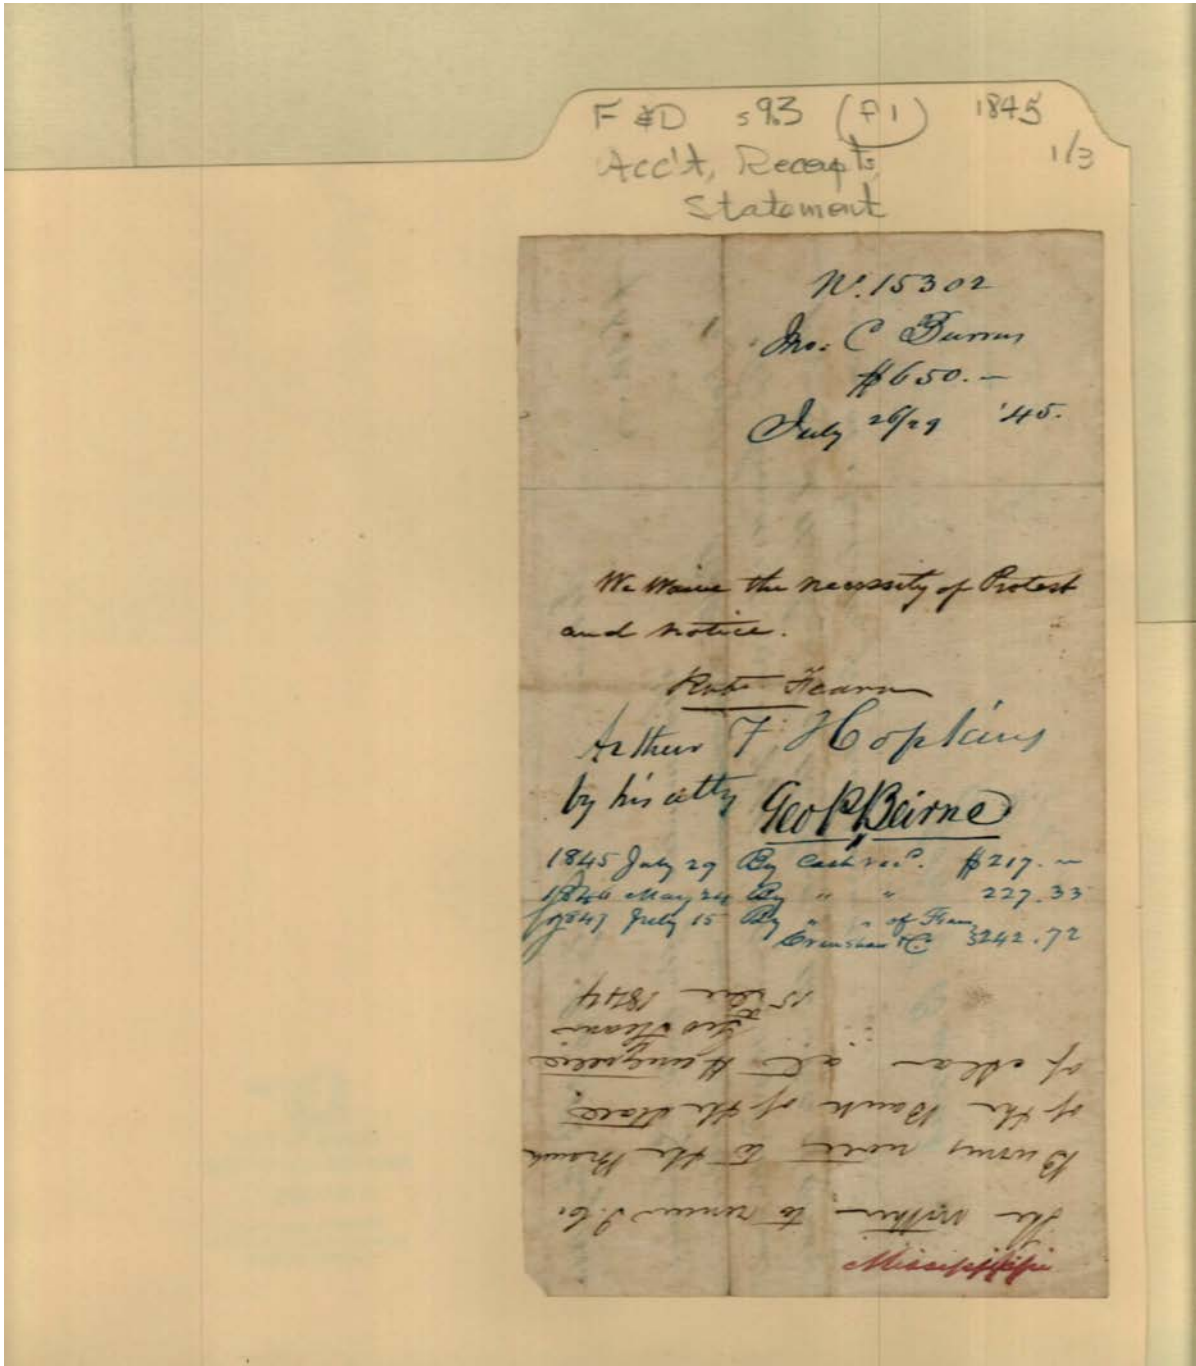 F & D s9.3 (f1) 1845
1/3
Acc't, Receipts,
Statement
No. 15302
Jno. C Burrus
$650.—
July 26/29 '45.
We Waive the necessity of Protest
and notice.
Robt Fearn
Arthur F. Hopkins
by his atty Geo P Beirne
1845 July 29 By Cash rec'd. $217.—
1846 May 24 By " " 227.33
1847 July 15 By " " of Fearn,
Crenshaw & Co 242.72
Mississippi
The within, to renew J. C.
Burrus note to the Branch
of the Bank of the State
of Ala at Huntsville
Geo Fearn
15 Dec 1844